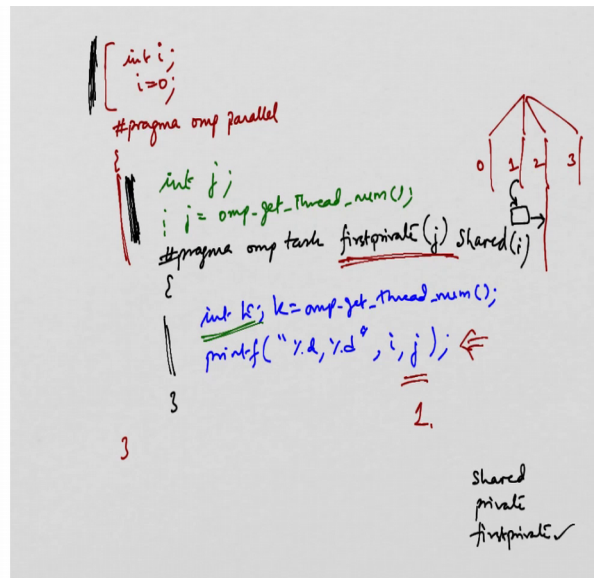 int i;
i=0;
#pragma omp parallel
{
0 1 2 3
int j;
j = omp_get_thread_num();
#pragma omp task firstprivate(j) shared(i)
{
int k; k=omp_get_thread_num();
printf("%d,%d", i, j);
}
1.
}
shared
private
firstprivate✓